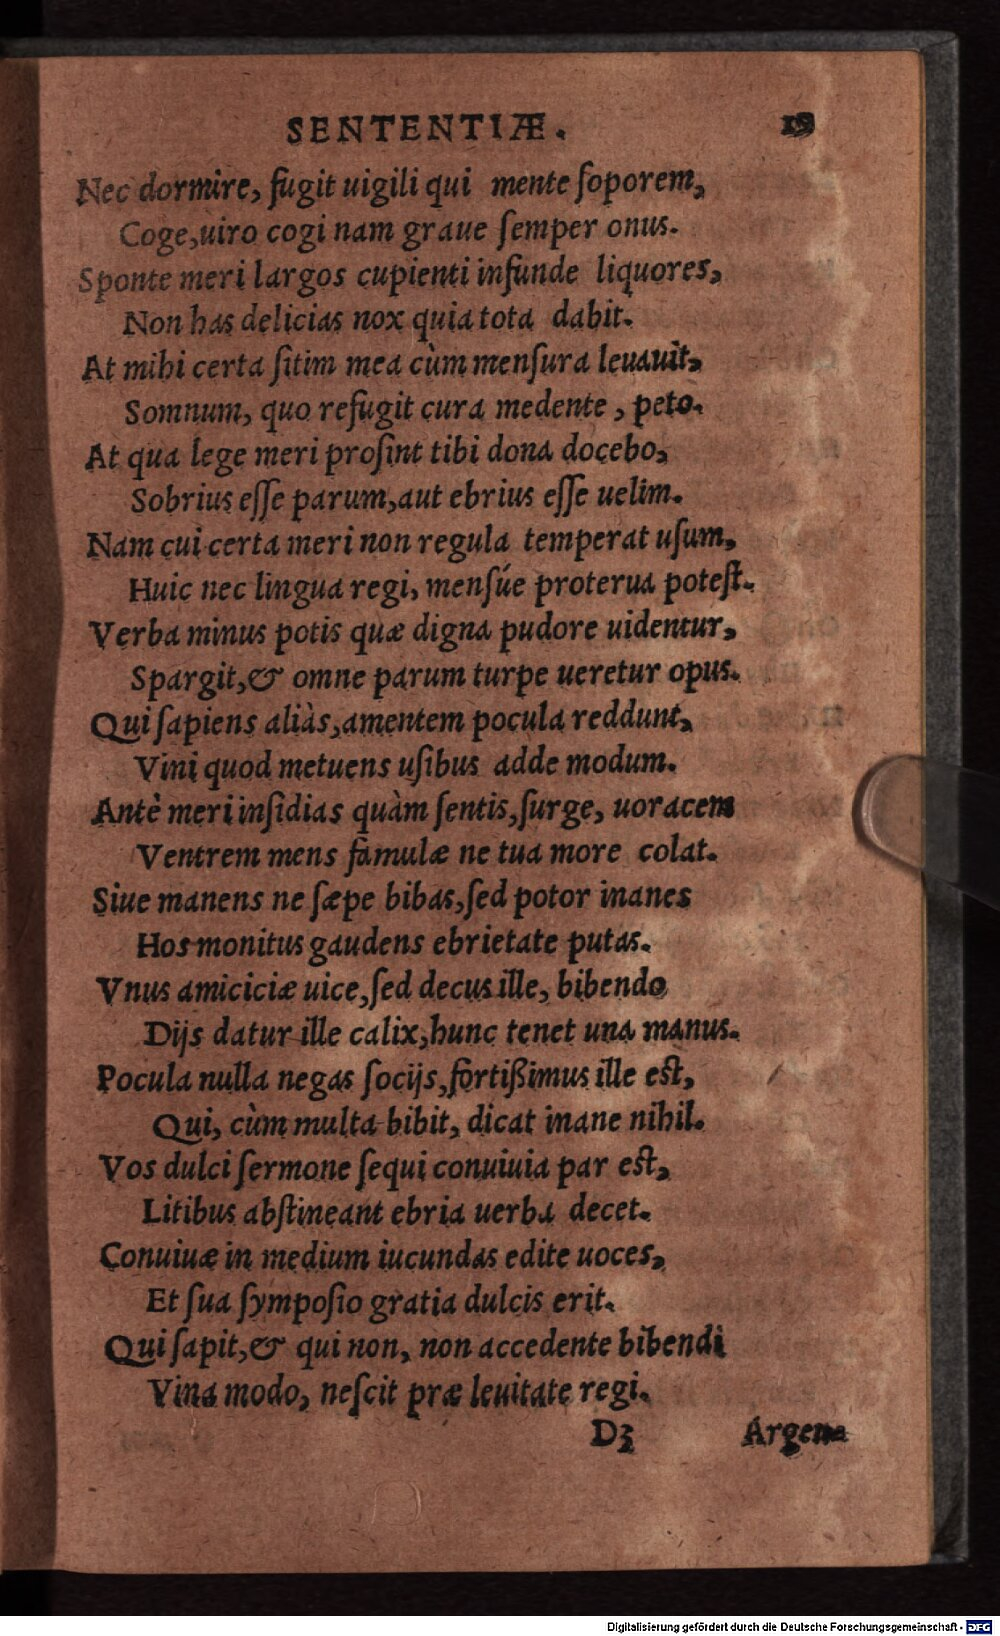 SENTENTIÆ. 19
Nec dormire, fugit uigili qui mente ſoporem,
Coge, uiro cogi nam graue ſemper onus.
Sponte meri largos cupienti infunde liquores,
Non has delicias nox quia tota dabit.
At mihi certa ſitim mea cùm menſura leuauit,
Somnum, quo refugit cura medente, peto.
At qua lege meri proſint tibi dona docebo,
Sobrius eſſe parum, aut ebrius eſſe uelim.
Nam cui certa meri non regula temperat uſum,
Huic nec lingua regi, menſúe proterua poteſt.
Verba minus potis quæ digna pudore uidentur,
Spargit, & omne parum turpe ueretur opus.
Qui ſapiens aliàs, amentem pocula reddunt,
Vini quod metuens uſibus adde modum.
Antè meri inſidias quàm ſentis, ſurge, uoracem
Ventrem mens famulæ ne tua more colat.
Siue manens ne ſæpe bibas, ſed potor inanes
Hos monitus gaudens ebrietate putas.
Vnus amiciciæ uice, ſed decus ille, bibendo
Dijs datur ille calix, hunc tenet una manus.
Pocula nulla negas ſocijs, fortißimus ille eſt,
Qui, cùm multa bibit, dicat inane nihil.
Vos dulci ſermone ſequi conuiuia par eſt,
Litibus abſtineant ebria uerba decet.
Conuiuæ in medium iucundas edite uoces,
Et ſua ſympoſio gratia dulcis erit.
Qui ſapit, & qui non, non accedente bibendi
Vina modo, neſcit præ leuitate regi.
D3 Argena
Digitalisierung gefördert durch die Deutsche Forschungsgemeinschaft - DFG